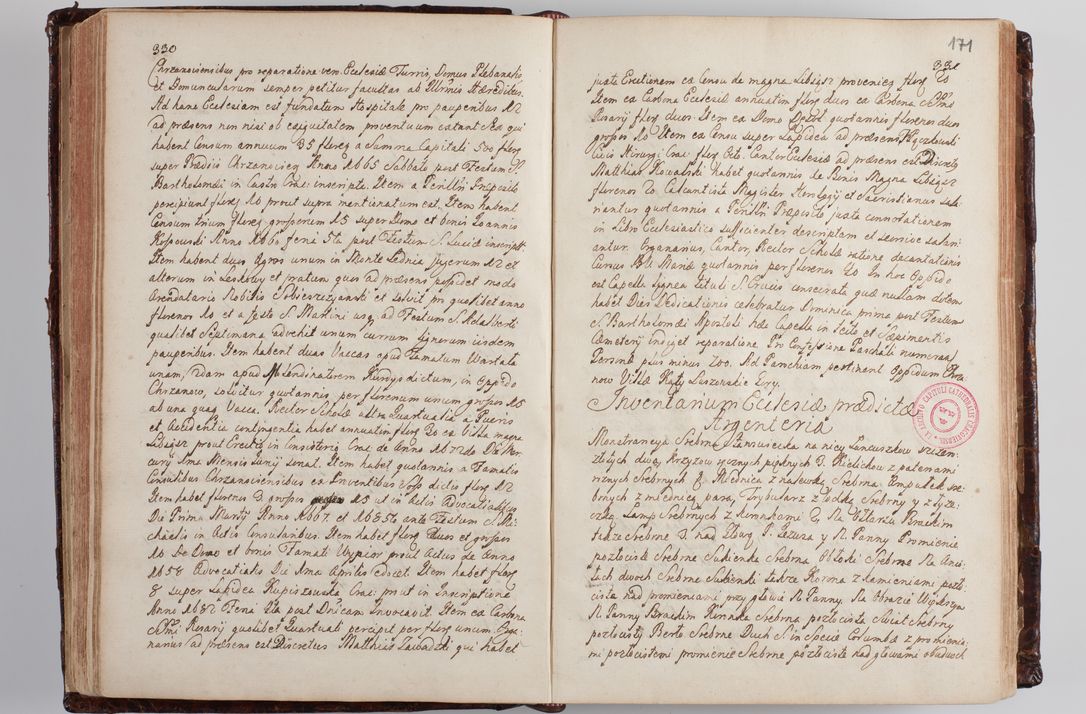 330
Chrzanoviensibus pro reparatione vero Ecclesiæ Turris, Domus Plebanalis
et Domuncularum semper petitur facultas ab Illrmis Hæredibus.
Ad hanc Ecclesiam est fundatum Hospitale pro pauperibus 12
ad præsens non nisi ob exiguitatem proventuum extant Sex qui
habent Censum annuum 35 floreg a Summa Capitali 500 floreg
super Prædiis Chrzanoviens Anno 1665 Sabbato post Festum S.
Bartholomæi in Castri Crac: inscripto. Item a Perillri Præposito
percipiunt floreg 10 prout supra mentionatum est. Item habent
Censum trium floreg grossorum 15 super Domo et bonis Joannis
Kossowski Anno 1660 feria 5ta post Festum S. Luciæ inscript
Item habent duos Agros unum in Monte Lednia Jugerum 12 et
alterum in Leskowy et pratum quos ad præsens possidet modo
Arendatario Nobilis Sobieszczyanski et solvit pro quolibet anno
florenos 10 et a festo S. Martini usq ad Festum S. Adalberti
qualibet Septimana advehit unum currum lignorum iisdem
pauperibus. Item habent duas Vaccas apud Famatum Wartala
unam, 2dam apud Molendinatorem Kurdys dictum, in Oppido
Chrzanow, solvitur quotannis, per florenum unum grossos 15
ab una quaq Vacca. Rector Scholæ ultra Quartualia a Pueris
et Accidentia contingentia habet annuatim floreg 30 ex Villa magna
Libiąz prout Erectio in Consistorio Crac de Anno 1672do Die Mer-
curij 8ma Mensis Junij sonat. Item habet quotannis a Famatis
Consulibus Chrzanoviensibus ex Proventibus Foro dictis floreg 12
Item habet florenos 3 grossos 15 ut in Actis Advocatialibus
Die Prima Martij Anno 1667. et 1685to ante Festum S. Mi-
chaelis in Actis Consularibus. Item habet floreg Duos et grossos
10 De Domo et bonis Famati Wypior prout Actus de Anno
1658 Advocatialis Die 8ma Aprilis docet. Item habet floreg
8 super Lapidea Kupiszowska Crac: prout in Inscriptione
Anno 1682 Feria 2da post Dnicam Invocavit. Item ex Carbona
SSmi Rosarij quolibet Quartuali percipit per floreg unum. Orga-
narius ad præsens est Discretus Matthias Zawadzki qui habet
171
331
juxta Erectionem ex Censu de magna Libiąz provenien floreg 20
Item ex Carbona Ecclesiæ annuatim floreg duos ex Carbona SSmi
Rosarij floreg duos. Item ex Domo Dozol quotannis florenos duos
grossos 10 Item ex Censu super Lapidea ad præsens
Civis Hirurgi Crac: floreg Octo. Cantor Ecclesiæ ad præsens est Discretus
Matthias Kowalski habet quotannis de Bonis Magna Libiąz
florenos 20 Calcantista Magister Horologij et Sacristianus sala-
riantur quotannis a Perillri Præposito juxta connotationem
in Libro Ecclesiastico sufficienter descriptam et seorsive salari-
antur. Organarius, Cantor, Rector Scholæ ratione decantationis
Cursus B.V. Mariæ quotannis per florenos 20. In hoc Oppido
est Capella lignea tituli S. Crucis consecrata quæ nullam dotem
habet Dies Dedicationis celebratur Dominica prima post Festum
S. Bartholomæi Apostoli hæc Capella in Tecto et Sæpimentis
Cæmeterij indiget reparatione. Pro Confessione Paschali numeran
Personæ plus minus 200. Ad Parochiam pertinent Oppidum Chrza-
now Villæ Kąty Luszowskie Gory.
Inventarium Ecclesiæ prædictæ
Argenteria
Monstrancya Srebrna Staroswiecka na niey Lancuszkow szczero-
złotych dwa, Krzyzow ręcznych pięknych 3. Kielichow z patenami
rożnych Srebrnych 8. Miednica z nalewką Srebrna. Ampułek sre-
brnych z miednicą para, Trybularz z Łodką Srebrny y z łyże-
czką. Lamp Srebrnych z koronkami 2. Na Ołtarzu Rzackim
Blachi srebrne 3. nad Głową P. Jezusa y N. Panny Promienie
pozłociste Srebrne Sukienka Srebrna Obłoki Srebrne Na Anio-
łach dwoch Srebrne Sukienki także Korona z kamieniami pozło-
cista nad promieniami przy głowie N. Panny. Na Obrazie Więkrzym
N. Panny Bractkim Koronka Srebrna pozłocista Swiat srebrny
pozłocisty Berło Srebrne Duch S. in Specie Columbæ z promienia-
mi pozłocistemi promienie Srebrne pozłociste nad głowami obudwoch